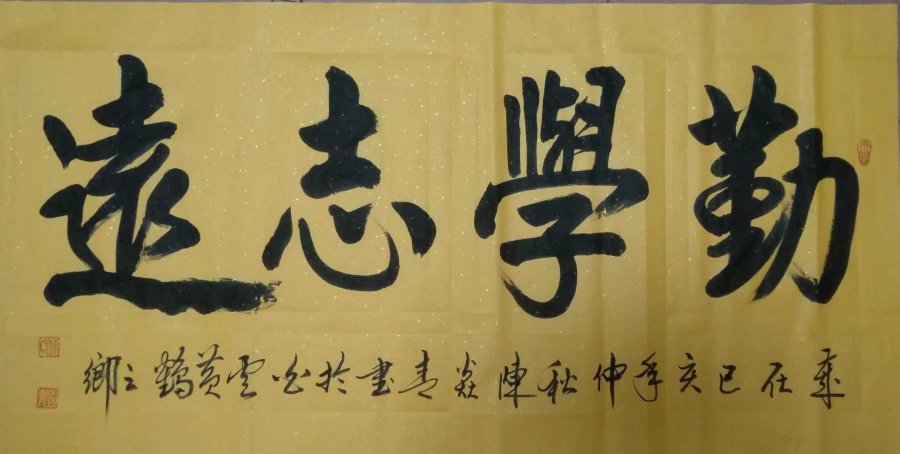 勤學志遠
歲在己亥年仲秋陳焱青書於白云黄鶴之鄉